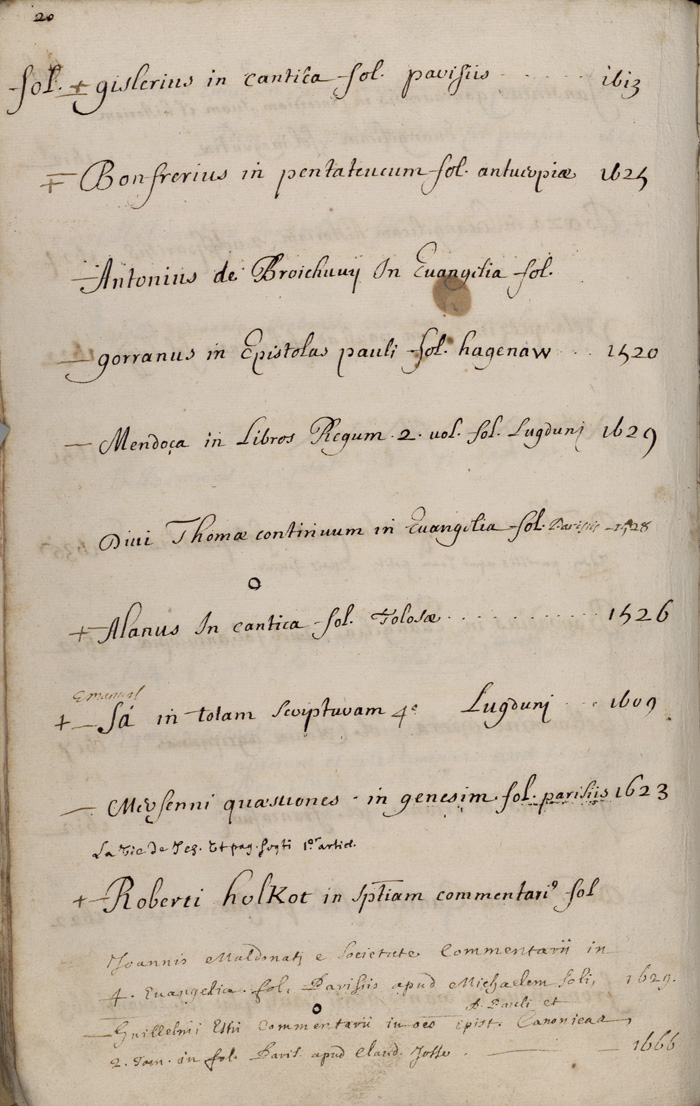 20
fol. + gislerius in cantica fol. parisiis . . . . . . 1613
+ Bonfrerius in pentateucum fol. antuerpiæ 1625
Antonius de Broickuuy In Euangelia fol.
gorranus in Epistolas pauli fol. hagenaw . . 1520
— Mendoça in Libros Regum . 2 . vol. fol. Lugdunj 1629
Diui Thomæ continuum in Euangelia fol. Parisiis — 1528
+ Alanus In cantica fol. Tolosæ . . . . . . . . . . 1526
Emanuel
+ — Sá in totam scripturam 4° Lugdunj . . 1609
— Mersenni quæstiones - in genesim fol. parisiis 1623
La vie de
+ Roberti holkot in sptiam commentari⁹ fol
Joannis Maldonatj e Societate Commentarii in
4. Euangelia. fol. Parisiis apud Michaelem soli, 1629.
D. Pauli et
Guillelmi Estii Commentarii in Epist. Canonicas,
2. Tom. in fol. Paris. apud Claud. Josse . — 1666